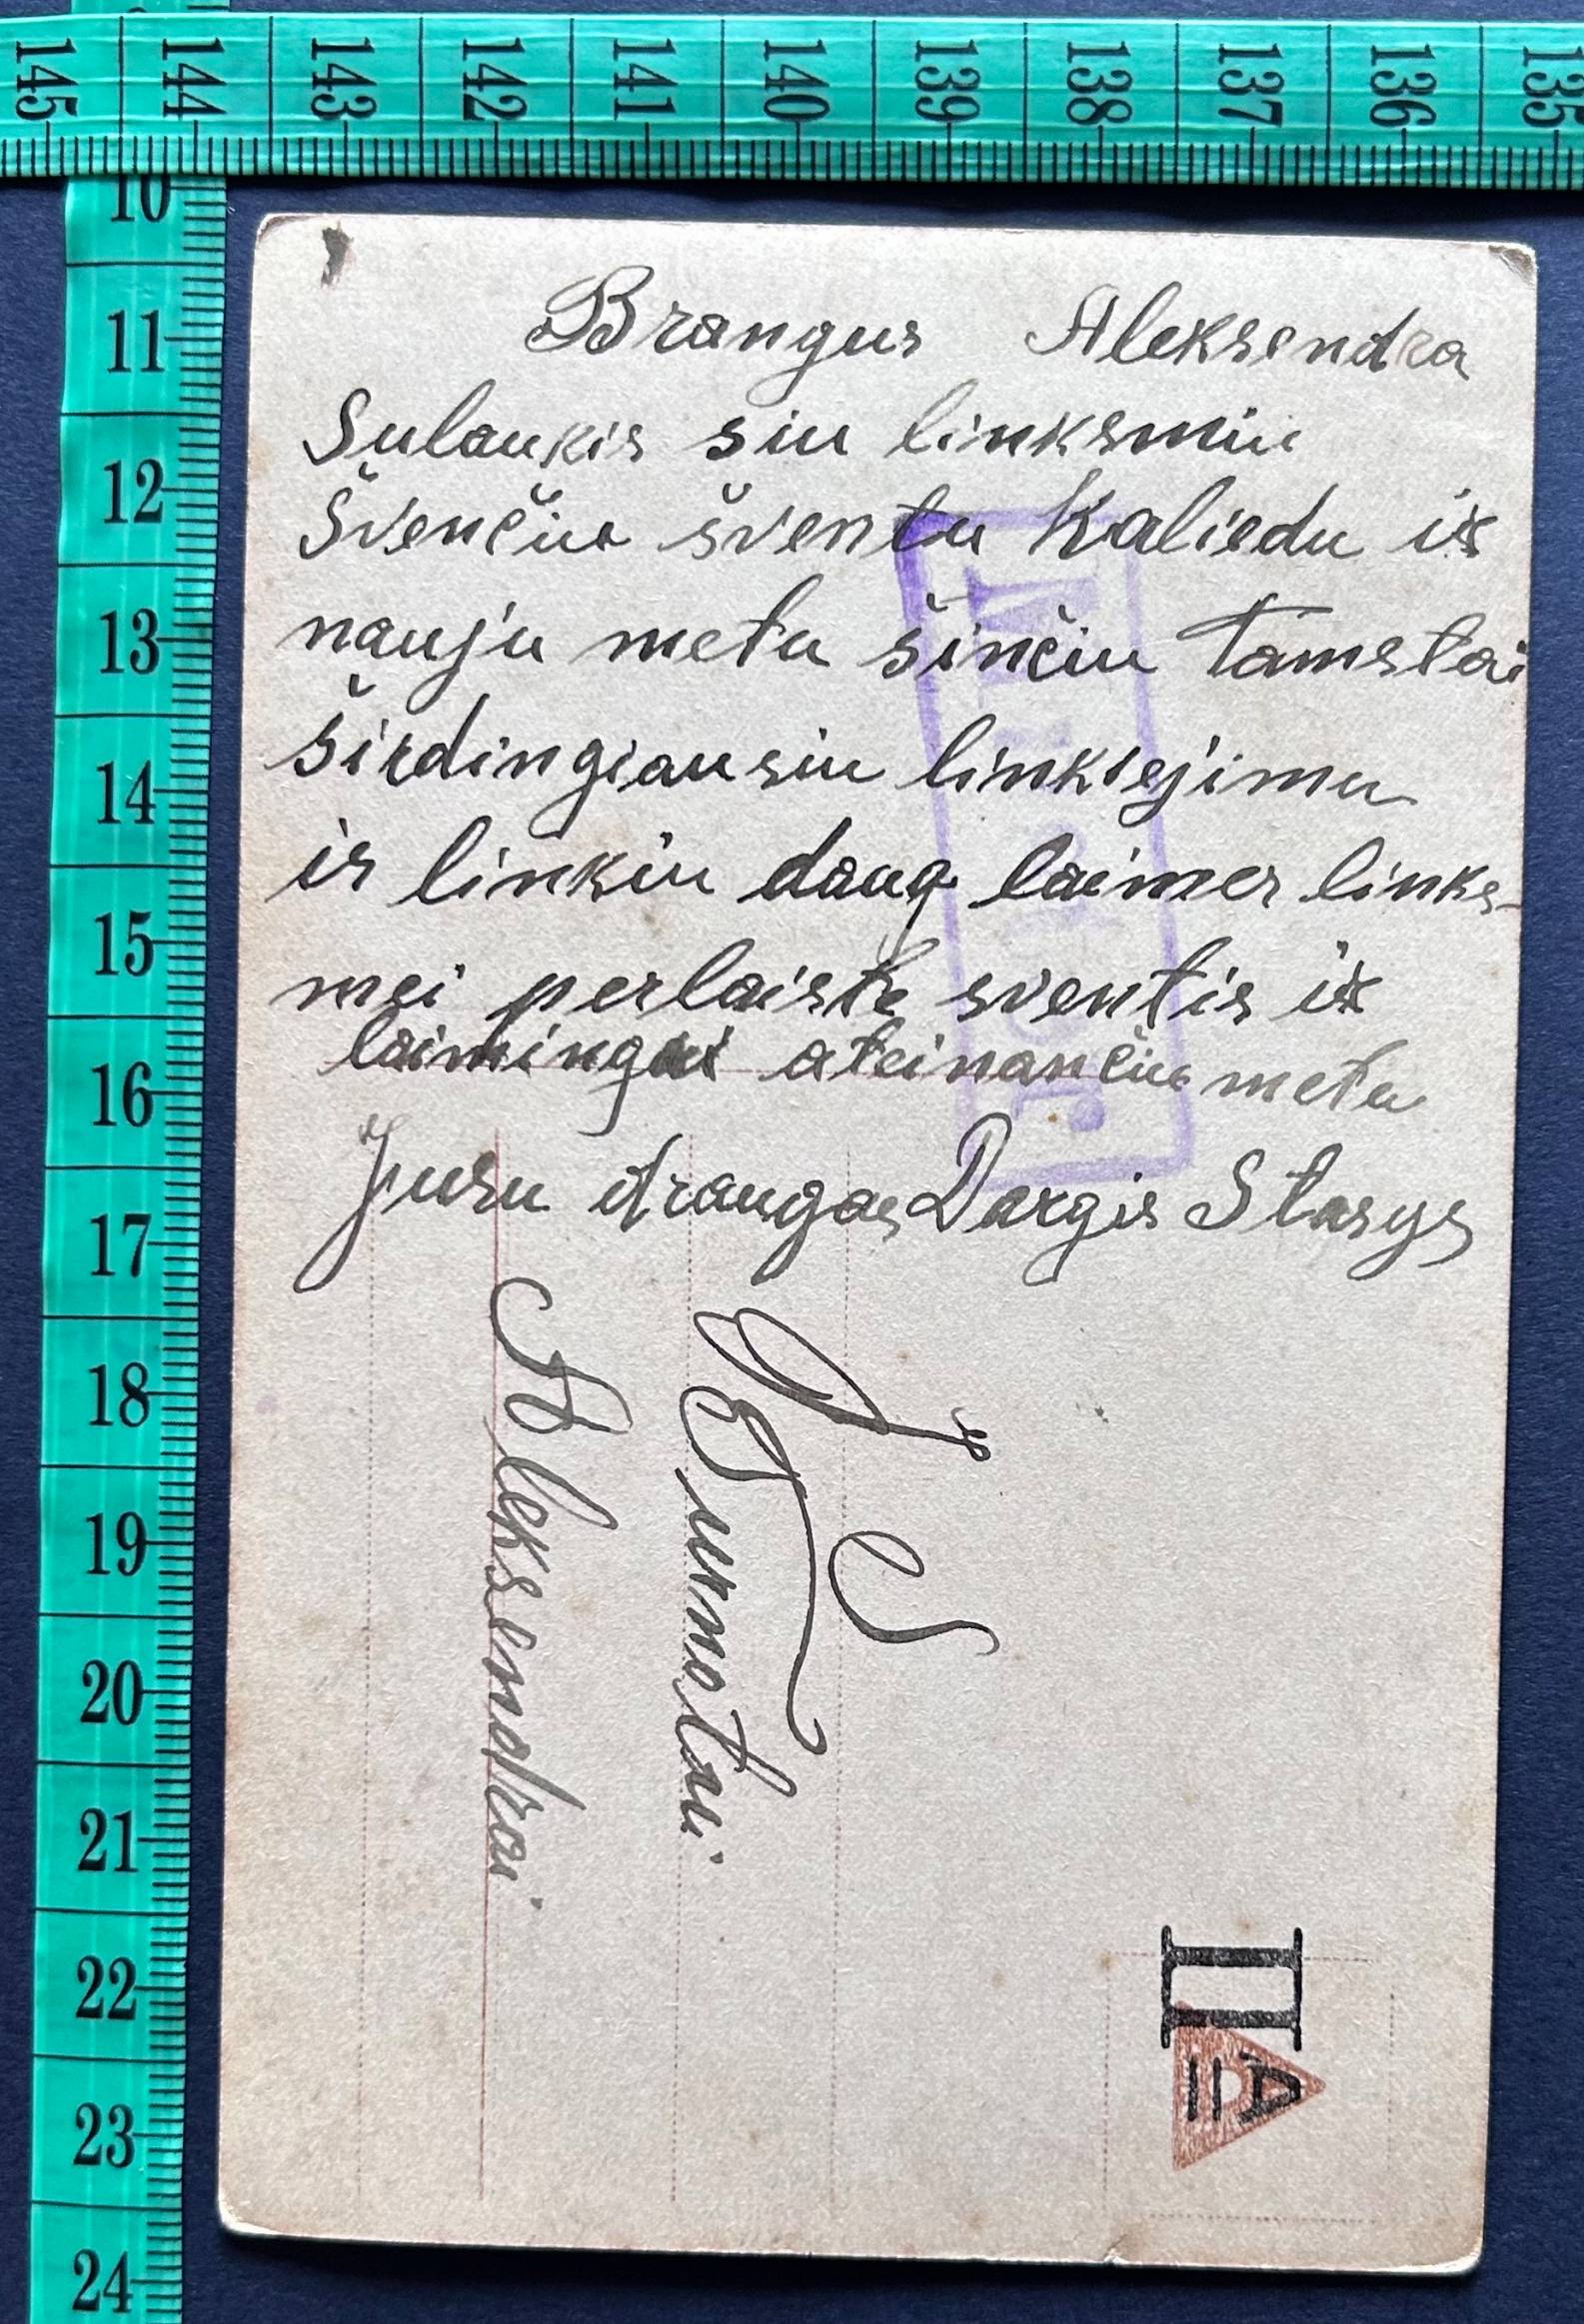 145 144 143 142 141 140 139 138 137 136 135
10
11
12
13
14
15
16
17
18
19
20
21
22
23
24
Brangus Aleksendra
Sulaukis siu linksmiu
Švenčiu šventu Kaliedu ir
nauju metu šinčiu Tamstai
širdingiausiu linkiejimu
ir linkiu daug laimes links-
mei perlaiste sventis ir
laimingai ateinančiu metu
Jusu draugas Dargis Stasys
J S
Aleksendrai
II
A